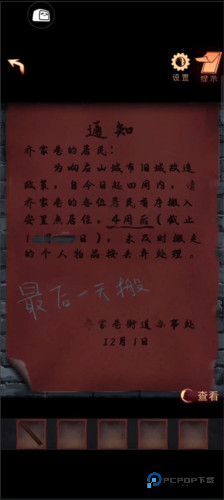 设置
提示
通知
齐家巷的居民:
为响应右山城市旧城改造
政策,自今日起四周内,
齐家巷的各位居民有序搬入
安置点居住,4周后(截止
1 日),未及时搬走
的个人物品按丢弃处理。
最后一天搬
齐家巷街道办事处
12月1日
查看
PCPOP下载